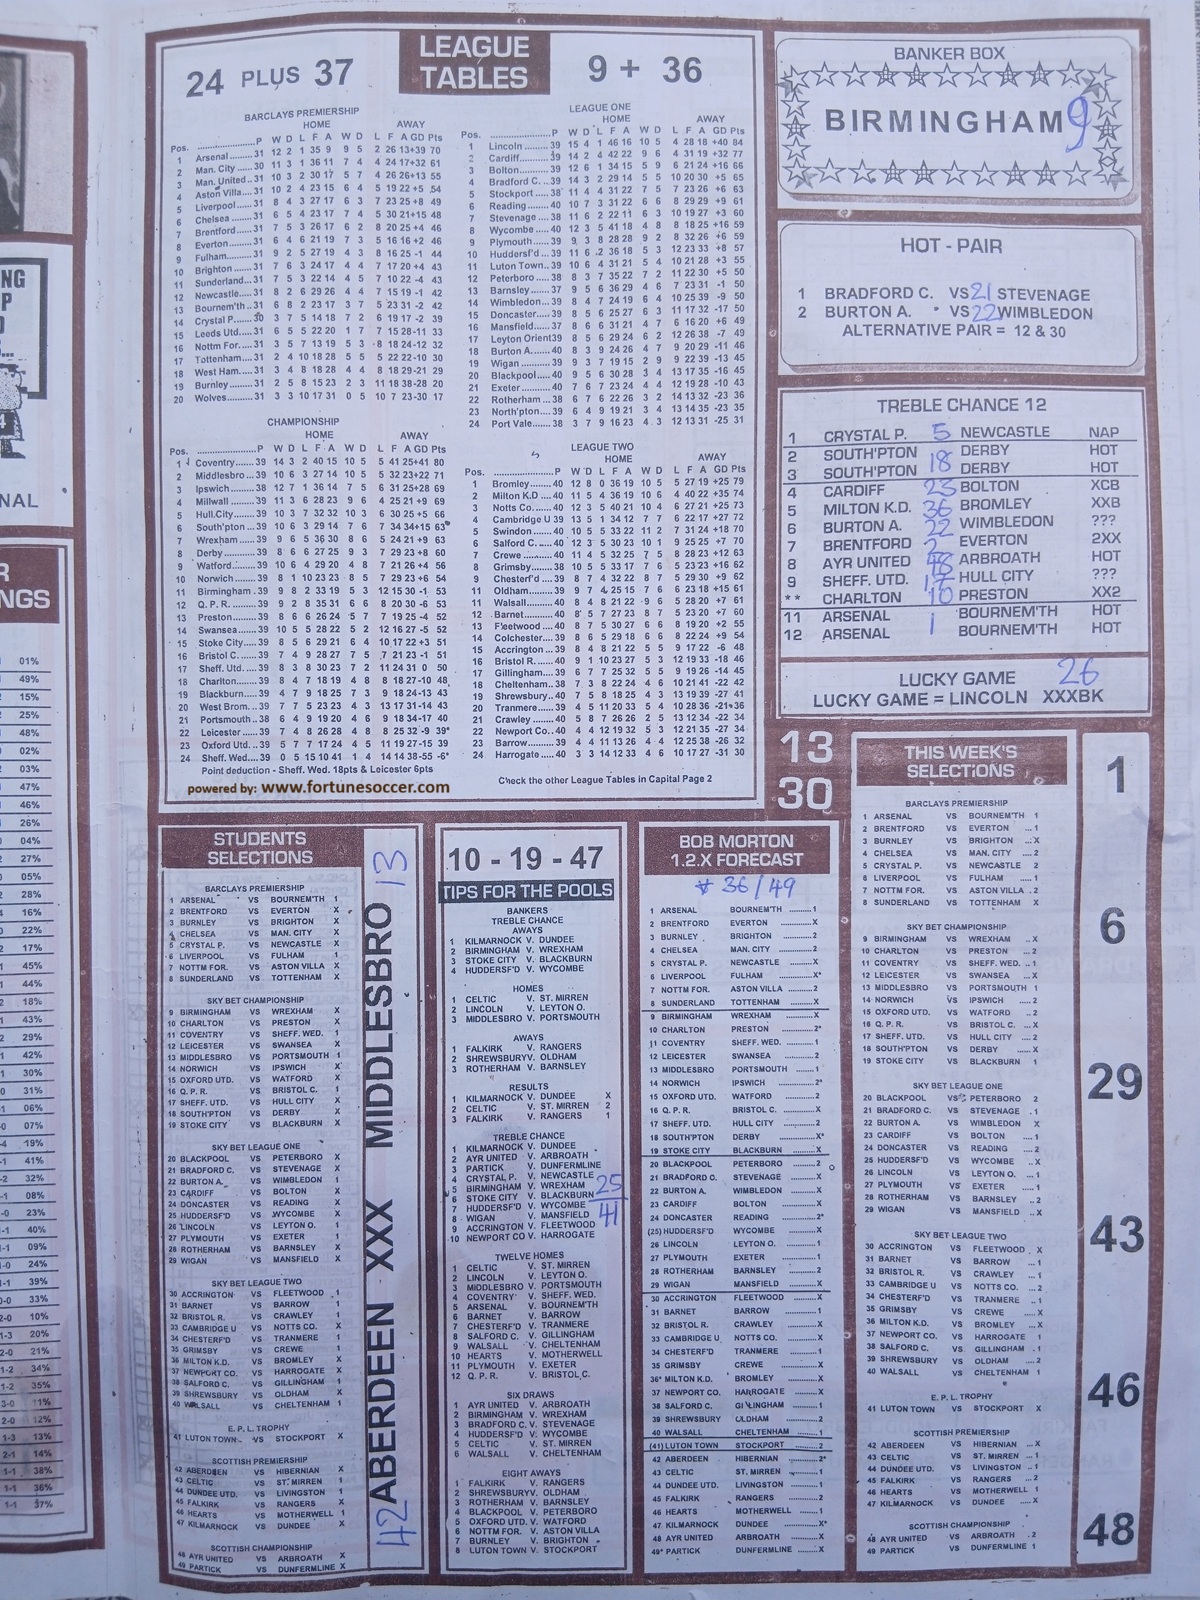 24 PLUS 37
LEAGUE TABLES
9 + 36
BARCLAYS PREMIERSHIP
HOME AWAY
Pos. P W D L F A W D L F A GD Pts
1 Arsenal 31 12 2 1 35 9 9 5 2 26 13 +39 70
2 Man. City 30 11 3 1 36 11 7 4 4 24 17 +32 61
3 Man. United 31 10 3 2 30 17 5 7 4 26 26 +13 55
4 Aston Villa 31 10 2 4 23 15 6 4 5 19 22 +5 54
5 Liverpool 31 8 4 3 27 17 6 3 7 23 25 +8 49
6 Chelsea 31 6 5 4 23 17 7 4 5 30 21 +15 48
7 Brentford 31 7 5 3 26 17 6 2 8 20 25 +4 46
8 Everton 31 6 4 6 21 19 7 3 5 16 16 +2 46
9 Fulham 31 9 2 5 27 19 4 3 8 16 25 -1 44
10 Brighton 31 7 6 3 24 17 4 4 7 17 20 +4 43
11 Sunderland 31 7 5 3 22 14 4 5 7 10 22 -4 43
12 Newcastle 31 8 2 6 29 26 4 4 7 15 19 -1 42
13 Bournem'th 31 6 8 2 23 17 3 7 5 23 31 -2 42
14 Crystal P. 30 3 7 5 14 18 7 2 6 19 17 -2 39
15 Leeds Utd 31 6 5 5 22 20 1 7 7 15 28 -11 33
16 Nottm For. 31 3 5 7 13 19 5 3 8 18 24 -12 32
17 Tottenham 31 2 4 10 18 28 5 5 5 22 22 -10 30
18 West Ham 31 3 4 8 18 28 4 4 8 18 29 -21 29
19 Burnley 31 2 5 8 15 23 2 3 11 18 38 -28 20
20 Wolves 31 3 3 10 17 31 0 5 10 7 23 -30 17
CHAMPIONSHIP
HOME AWAY
P W D L F A W D L F A GD Pts
1 Coventry 39 14 3 2 40 15 10 5 5 41 25 +41 80
2 Middlesbro 39 10 6 3 27 14 10 5 5 32 23 +22 71
3 Ipswich 38 12 7 1 36 14 7 5 6 31 25 +28 69
4 Millwall 39 11 3 6 28 23 9 6 4 25 21 +9 69
5 Hull City 39 10 3 7 32 32 10 3 6 30 25 +5 66
6 South'pton 39 10 6 3 29 14 7 6 7 34 34 +15 63
7 Wrexham 39 9 6 5 36 30 8 6 5 24 21 +9 63
8 Derby 39 8 5 6 27 25 9 3 7 29 23 +8 60
9 Watford 39 10 6 4 29 20 4 8 7 21 26 +4 56
10 Norwich 39 8 1 10 23 23 8 5 7 29 23 +6 54
11 Birmingham 39 9 8 2 33 19 5 3 12 15 30 -1 53
12 Q. P. R. 39 9 2 8 35 31 6 6 8 20 30 -6 53
13 Preston 39 8 6 6 26 24 5 7 7 19 25 -4 52
14 Swansea 39 10 5 5 28 22 5 2 12 16 27 -5 52
15 Stoke City 39 8 5 6 29 21 6 4 10 17 22 +3 51
16 Bristol C. 39 7 4 9 28 27 7 5 7 21 23 -1 51
17 Sheff. Utd. 39 8 3 8 30 23 7 2 11 24 31 0 50
18 Charlton 39 8 4 7 18 19 4 8 8 18 27 -10 48
19 Blackburn 39 4 7 9 18 25 7 3 9 18 24 -13 43
20 West Brom. 39 7 7 5 23 23 4 3 13 17 31 -14 43
21 Portsmouth 38 6 4 9 19 20 4 6 9 18 34 -17 40
22 Leicester 39 7 4 8 26 28 4 8 8 25 32 -9 39*
23 Oxford Utd 39 5 7 7 17 24 4 5 11 19 27 -15 39
24 Sheff. Wed. 39 0 5 15 10 41 1 4 14 14 38 -55 -6*
Point deduction - Sheff. Wed. 18pts & Leicester 6pts
powered by: www.fortunesoccer.com
LEAGUE ONE
HOME AWAY
Pos. P W D L F A W D L F A GD Pts
1 Lincoln 39 15 4 1 46 16 10 5 4 28 18 +40 84
2 Cardiff 39 14 2 4 42 22 9 6 4 31 19 +32 77
3 Bolton 39 12 6 1 34 15 5 9 6 21 24 +16 66
4 Bradford C. 39 14 3 2 29 14 5 5 10 20 30 +5 65
5 Stockport 38 11 4 4 31 22 7 5 7 23 26 +6 63
6 Reading 40 10 7 3 31 22 6 6 8 29 29 +9 61
7 Stevenage 38 11 6 2 22 11 6 3 10 19 27 +3 60
8 Wycombe 40 12 3 5 41 18 4 8 8 18 25 +16 59
9 Plymouth 39 9 3 8 28 28 9 2 8 32 26 +6 59
10 Huddersf'd 39 11 6 2 36 18 5 3 12 23 33 +8 57
11 Luton Town 39 10 6 4 31 21 5 4 10 21 28 +3 55
12 Peterboro 38 8 3 7 35 22 7 2 11 22 30 +5 50
13 Barnsley 37 9 5 6 36 29 4 6 7 23 31 -1 50
14 Wimbledon 39 8 4 7 24 19 6 4 10 25 39 -9 50
15 Doncaster 40 8 5 6 25 27 6 3 12 17 32 -17 50
16 Mansfield 37 8 6 6 31 21 4 7 6 16 20 +6 49
17 Leyton Orient 39 8 5 6 29 24 6 2 12 26 38 -7 49
18 Burton A. 40 8 3 9 24 26 4 7 9 20 29 -11 46
19 Wigan 39 9 3 7 19 15 2 9 9 22 39 -13 45
20 Blackpool 40 9 5 6 30 28 3 4 13 17 35 -16 45
21 Exeter 40 7 6 7 23 24 4 4 12 19 28 -10 43
22 Rotherham 40 6 7 6 22 26 3 2 14 14 32 -23 36
23 North'pton 39 6 4 9 19 21 3 4 13 14 35 -23 35
24 Port Vale 38 3 7 9 16 23 4 3 12 13 31 -25 31
LEAGUE TWO
HOME AWAY
Pos. P W D L F A W D L F A GD Pts
1 Bromley 40 12 8 0 36 19 10 5 5 27 19 +25 79
2 Milton K.D 40 11 5 4 36 19 10 6 4 40 22 +35 74
3 Notts Co. 40 12 3 5 40 21 10 4 6 27 21 +25 73
4 Cambridge U 39 13 5 1 34 12 7 7 6 22 17 +27 72
5 Swindon 40 10 5 5 33 22 11 2 7 31 24 +18 70
6 Salford C. 40 12 3 5 30 23 10 1 9 25 25 +7 70
7 Crewe 40 11 4 5 32 25 7 5 8 28 23 +12 63
8 Grimsby 38 10 5 5 33 17 7 6 5 23 23 +16 62
9 Chesterf'd 39 8 7 4 32 22 8 7 5 29 30 +9 62
10 Oldham 39 9 7 4 25 15 7 6 6 23 18 +15 61
11 Walsall 40 8 4 8 21 22 9 6 5 28 20 +7 61
12 Barnet 40 8 5 7 27 23 8 7 5 23 20 +7 60
13 Fleetwood 40 8 7 5 30 27 6 6 8 19 20 +2 55
14 Colchester 39 8 6 5 29 18 6 6 8 22 24 +9 54
15 Accrington 39 8 4 8 21 22 5 5 9 17 22 -6 48
16 Bristol R. 40 9 1 10 23 27 5 3 12 19 33 -18 46
17 Gillingham 39 6 7 7 25 32 5 5 9 19 26 -14 45
18 Cheltenham 38 7 3 8 22 24 4 6 10 21 41 -22 42
19 Shrewsbury 40 7 5 8 18 25 4 3 13 19 39 -27 41
20 Tranmere 40 4 5 11 20 33 5 4 10 28 36 -21 36
21 Crawley 40 5 8 7 26 26 2 5 13 12 34 -22 34
22 Newport Co. 40 4 4 12 19 32 5 3 12 21 35 -27 34
23 Barrow 39 4 4 11 13 26 4 4 12 25 38 -26 32
24 Harrogate 40 3 3 14 12 33 4 6 10 17 27 -31 30
Check the other League Tables in Capital Page 2
BANKER BOX
BIRMINGHAM 9
HOT - PAIR
1 BRADFORD C. VS 21 STEVENAGE
2 BURTON A. VS 22 WIMBLEDON
ALTERNATIVE PAIR = 12 & 30
TREBLE CHANCE 12
1 CRYSTAL P. 5 NEWCASTLE NAP
2 SOUTH'PTON DERBY HOT
3 SOUTH'PTON 18 DERBY HOT
4 CARDIFF 23 BOLTON XCB
5 MILTON K.D. 36 BROMLEY XXB
6 BURTON A. 22 WIMBLEDON ???
7 BRENTFORD 2 EVERTON 2XX
8 AYR UNITED 48 ARBROATH HOT
9 SHEFF. UTD. 17 HULL CITY ???
** CHARLTON 10 PRESTON XX2
11 ARSENAL BOURNEM'TH HOT
12 ARSENAL 1 BOURNEM'TH HOT
LUCKY GAME 26
LUCKY GAME = LINCOLN XXXBK
13
30
STUDENTS SELECTIONS
BARCLAYS PREMIERSHIP
1 ARSENAL VS BOURNEM'TH 1
2 BRENTFORD VS EVERTON X
3 BURNLEY VS BRIGHTON X
4 CHELSEA VS MAN. CITY X
5 CRYSTAL P. VS NEWCASTLE X
6 LIVERPOOL VS FULHAM 1
7 NOTTM FOR. VS ASTON VILLA X
8 SUNDERLAND VS TOTTENHAM X
SKY BET CHAMPIONSHIP
9 BIRMINGHAM VS WREXHAM X
10 CHARLTON VS PRESTON X
11 COVENTRY VS SHEFF. WED. 1
12 LEICESTER VS SWANSEA X
13 MIDDLESBRO VS PORTSMOUTH 1
14 NORWICH VS IPSWICH X
15 OXFORD UTD. VS WATFORD X
16 Q. P. R. VS BRISTOL C. 1
17 SHEFF. UTD. VS HULL CITY X
18 SOUTH'PTON VS DERBY X
19 STOKE CITY VS BLACKBURN X
SKY BET LEAGUE ONE
20 BLACKPOOL VS PETERBORO X
21 BRADFORD C. VS STEVENAGE X
22 BURTON A. VS WIMBLEDON 1
23 CARDIFF VS BOLTON X
24 DONCASTER VS READING X
25 HUDDERSF'D VS WYCOMBE X
26 LINCOLN VS LEYTON O. 1
27 PLYMOUTH VS EXETER 1
28 ROTHERHAM VS BARNSLEY X
29 WIGAN VS MANSFIELD X
SKY BET LEAGUE TWO
30 ACCRINGTON VS FLEETWOOD 1
31 BARNET VS BARROW 1
32 BRISTOL R. VS CRAWLEY 1
33 CAMBRIDGE U VS NOTTS CO. X
34 CHESTERF'D VS TRANMERE 1
35 GRIMSBY VS CREWE 1
36 MILTON K.D. VS BROMLEY X
37 NEWPORT CO. VS HARROGATE X
38 SALFORD C. VS GILLINGHAM 1
39 SHREWSBURY VS OLDHAM X
40 WALSALL VS CHELTENHAM 1
E.P.L. TROPHY
41 LUTON TOWN VS STOCKPORT X
SCOTTISH PREMIERSHIP
42 ABERDEEN VS HIBERNIAN X
43 CELTIC VS ST. MIRREN 1
44 DUNDEE UTD. VS LIVINGSTON 1
45 FALKIRK VS RANGERS X
46 HEARTS VS MOTHERWELL 1
47 KILMARNOCK VS DUNDEE X
SCOTTISH CHAMPIONSHIP
48 AYR UNITED VS ARBROATH X
49 PARTICK VS DUNFERMLINE X
42 ABERDEEN XXX MIDDLESBRO 13
10 - 19 - 47
TIPS FOR THE POOLS
BANKERS
TREBLE CHANCE
AWAYS
1 KILMARNOCK V. DUNDEE
2 BIRMINGHAM V. WREXHAM
3 STOKE CITY V. BLACKBURN
4 HUDDERSF'D V. WYCOMBE
HOMES
1 CELTIC V. ST. MIRREN
2 LINCOLN V. LEYTON O.
3 MIDDLESBRO V. PORTSMOUTH
AWAYS
1 FALKIRK V. RANGERS
2 SHREWSBURY V. OLDHAM
3 ROTHERHAM V. BARNSLEY
RESULTS
1 KILMARNOCK V. DUNDEE X
2 CELTIC V. ST. MIRREN 2
3 FALKIRK V. RANGERS 1
TREBLE CHANCE
1 KILMARNOCK V. DUNDEE
2 AYR UNITED V. ARBROATH
3 PARTICK V. DUNFERMLINE
4 CRYSTAL P. V. NEWCASTLE
5 BIRMINGHAM V. WREXHAM
6 STOKE CITY V. BLACKBURN
7 HUDDERSF'D V. WYCOMBE
8 WIGAN V. MANSFIELD
9 ACCRINGTON V. FLEETWOOD
10 NEWPORT CO V. HARROGATE
25
41
TWELVE HOMES
1 CELTIC V. ST. MIRREN
2 LINCOLN V. LEYTON O.
3 MIDDLESBRO V. PORTSMOUTH
4 COVENTRY V. SHEFF. WED.
5 ARSENAL V. BOURNEM'TH
6 BARNET V. BARROW
7 CHESTERF'D V. TRANMERE
8 SALFORD C. V. GILLINGHAM
9 WALSALL V. CHELTENHAM
10 HEARTS V. MOTHERWELL
11 PLYMOUTH V. EXETER
12 Q. P. R. V. BRISTOL C.
SIX DRAWS
1 AYR UNITED V. ARBROATH
2 BIRMINGHAM V. WREXHAM
3 BRADFORD C. V. STEVENAGE
4 HUDDERSF'D V. WYCOMBE
5 CELTIC V. ST. MIRREN
6 WALSALL V. CHELTENHAM
EIGHT AWAYS
1 FALKIRK V. RANGERS
2 SHREWSBURY V. OLDHAM
3 ROTHERHAM V. BARNSLEY
4 BLACKPOOL V. PETERBORO
5 OXFORD UTD V. WATFORD
6 NOTTM FOR. V. ASTON VILLA
7 BURNLEY V. BRIGHTON
8 LUTON TOWN V. STOCKPORT
BOB MORTON
1.2.X FORECAST
# 36/49
1 ARSENAL BOURNEM'TH 1
2 BRENTFORD EVERTON X
3 BURNLEY BRIGHTON 2
4 CHELSEA MAN. CITY 2
5 CRYSTAL P. NEWCASTLE X
6 LIVERPOOL FULHAM X*
7 NOTTM FOR. ASTON VILLA 2
8 SUNDERLAND TOTTENHAM X
9 BIRMINGHAM WREXHAM X
10 CHARLTON PRESTON 2*
11 COVENTRY SHEFF. WED. 1
12 LEICESTER SWANSEA 2
13 MIDDLESBRO PORTSMOUTH 1
14 NORWICH IPSWICH 2*
15 OXFORD UTD. WATFORD 2
16 Q. P. R. BRISTOL C. X
17 SHEFF. UTD. HULL CITY 2
18 SOUTH'PTON DERBY X*
19 STOKE CITY BLACKBURN X
20 BLACKPOOL PETERBORO 2
21 BRADFORD C. STEVENAGE X
22 BURTON A. WIMBLEDON X
23 CARDIFF BOLTON X
24 DONCASTER READING 2*
(25) HUDDERSF'D WYCOMBE X
26 LINCOLN LEYTON O. 1
27 PLYMOUTH EXETER 1
28 ROTHERHAM BARNSLEY 2
29 WIGAN MANSFIELD X
30 ACCRINGTON FLEETWOOD X
31 BARNET BARROW 1
32 BRISTOL R. CRAWLEY X
33 CAMBRIDGE U NOTTS CO. X
34 CHESTERF'D TRANMERE 1
35 GRIMSBY CREWE X
36* MILTON K.D. BROMLEY X
37 NEWPORT CO. HARROGATE X
38 SALFORD C. GILLINGHAM 1
39 SHREWSBURY OLDHAM 2
40 WALSALL CHELTENHAM 1
(41) LUTON TOWN STOCKPORT 2
42 ABERDEEN HIBERNIAN 2*
43 CELTIC ST. MIRREN 1
44 DUNDEE UTD. LIVINGSTON 1
45 FALKIRK RANGERS 2
46 HEARTS MOTHERWELL 1
47 KILMARNOCK DUNDEE X*
48 AYR UNITED ARBROATH X
49* PARTICK DUNFERMLINE X
THIS WEEK'S SELECTIONS
BARCLAYS PREMIERSHIP
1 ARSENAL VS BOURNEM'TH 1
2 BRENTFORD VS EVERTON 1
3 BURNLEY VS BRIGHTON X
4 CHELSEA VS MAN. CITY 2
5 CRYSTAL P. VS NEWCASTLE 2
6 LIVERPOOL VS FULHAM 1
7 NOTTM FOR. VS ASTON VILLA 2
8 SUNDERLAND VS TOTTENHAM X
SKY BET CHAMPIONSHIP
9 BIRMINGHAM VS WREXHAM X
10 CHARLTON VS PRESTON 2
11 COVENTRY VS SHEFF. WED. 1
12 LEICESTER VS SWANSEA X
13 MIDDLESBRO VS PORTSMOUTH 1
14 NORWICH VS IPSWICH 2
15 OXFORD UTD. VS WATFORD 2
16 Q. P. R. VS BRISTOL C. X
17 SHEFF. UTD VS HULL CITY 2
18 SOUTH'PTON VS DERBY X
19 STOKE CITY VS BLACKBURN 1
SKY BET LEAGUE ONE
20 BLACKPOOL VS PETERBORO 2
21 BRADFORD C. VS STEVENAGE 1
22 BURTON A. VS WIMBLEDON X
23 CARDIFF VS BOLTON 1
24 DONCASTER VS READING 2
25 HUDDERSF'D VS WYCOMBE X
26 LINCOLN VS LEYTON O. 1
27 PLYMOUTH VS EXETER 1
28 ROTHERHAM VS BARNSLEY 2
29 WIGAN VS MANSFIELD X
SKY BET LEAGUE TWO
30 ACCRINGTON VS FLEETWOOD X
31 BARNET VS BARROW 1
32 BRISTOL R. VS CRAWLEY 1
33 CAMBRIDGE U VS NOTTS CO. 2
34 CHESTERF'D VS TRANMERE 1
35 GRIMSBY VS CREWE X
36 MILTON K.D. VS BROMLEY X
37 NEWPORT CO. VS HARROGATE 1
38 SALFORD C. VS GILLINGHAM 1
39 SHREWSBURY VS OLDHAM 2
40 WALSALL VS CHELTENHAM 1
E.P.L. TROPHY
41 LUTON TOWN VS STOCKPORT X
SCOTTISH PREMIERSHIP
42 ABERDEEN VS HIBERNIAN X
43 CELTIC VS ST. MIRREN 1
44 DUNDEE UTD. VS LIVINGSTON 1
45 FALKIRK VS RANGERS 2
46 HEARTS VS MOTHERWELL 1
47 KILMARNOCK VS DUNDEE X
SCOTTISH CHAMPIONSHIP
48 AYR UNITED VS ARBROATH 2
49 PARTICK VS DUNFERMLINE 1
1
6
29
43
46
48